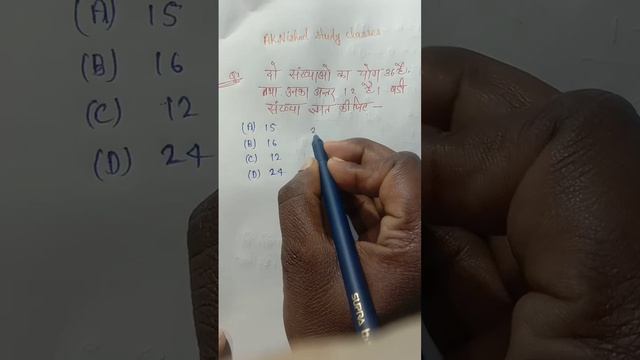 AK Nishad study classes
Q1 दो संख्याओं का योग 36 है,
तथा उनका अन्तर 12 है। बडी
संख्या ज्ञात कीजिए -
(A) 15
(B) 16
(C) 12
(D) 24
SUPRA
(A) 15
(B) 16
(C) 12
(D) 24